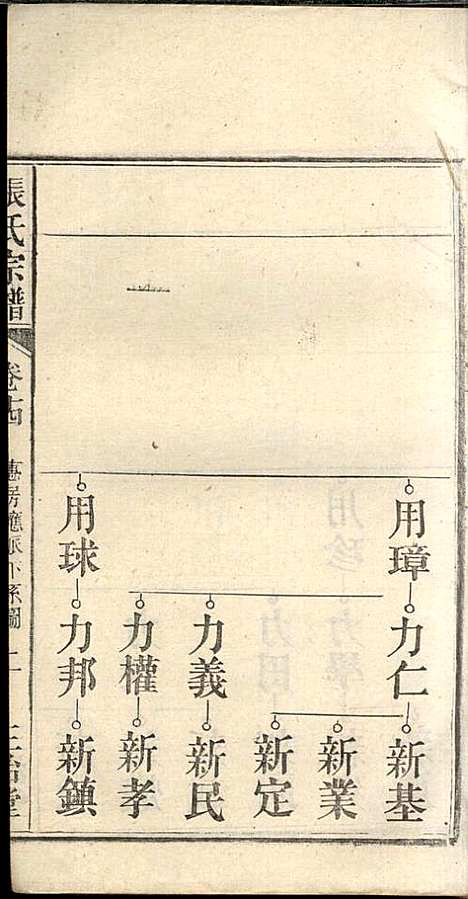 用璋
力仁
新基
新業
新定
力義
新民
力權
新孝
用球
力邦
新鎮
張氏宗譜
卷十四
房應派下系圖
二